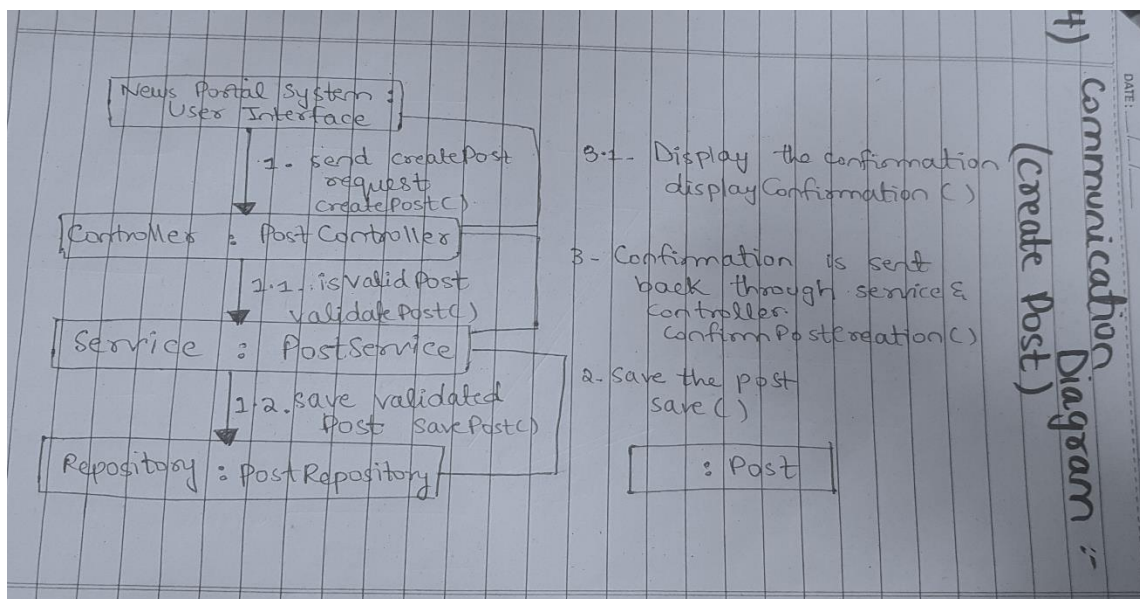 DATE: __/__/____
4) Communication Diagram :-
(Create Post)
News Portal System :
User Interface
1- send createPost
request
createPost()
Controller : PostController
1.1. isValidPost
validatePost()
Service : PostService
1.2. save validated
Post savePost()
Repository : PostRepository
3.1- Display the confirmation
displayConfirmation()
3- Confirmation is sent
back through service &
controller.
confirmPostCreation()
2. Save the post
save()
: Post